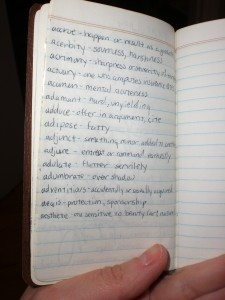 accrue - happen or results as a
acerbity - sourness, harshness
acrimony - sharpness or
actuary - one who computes
acumen - mental keenness
adamant - hard, unyielding
adduce - offer in argument, cite
adipose - fatty
adjunct - something minor added to
adjure - entreat or command earnestly
adulate - flatter servilely
adumbrate - over shadow
adventitious - accidentally or casually acquired
aegis - protection, sponsorship
aesthete - sensitive to beauty (art